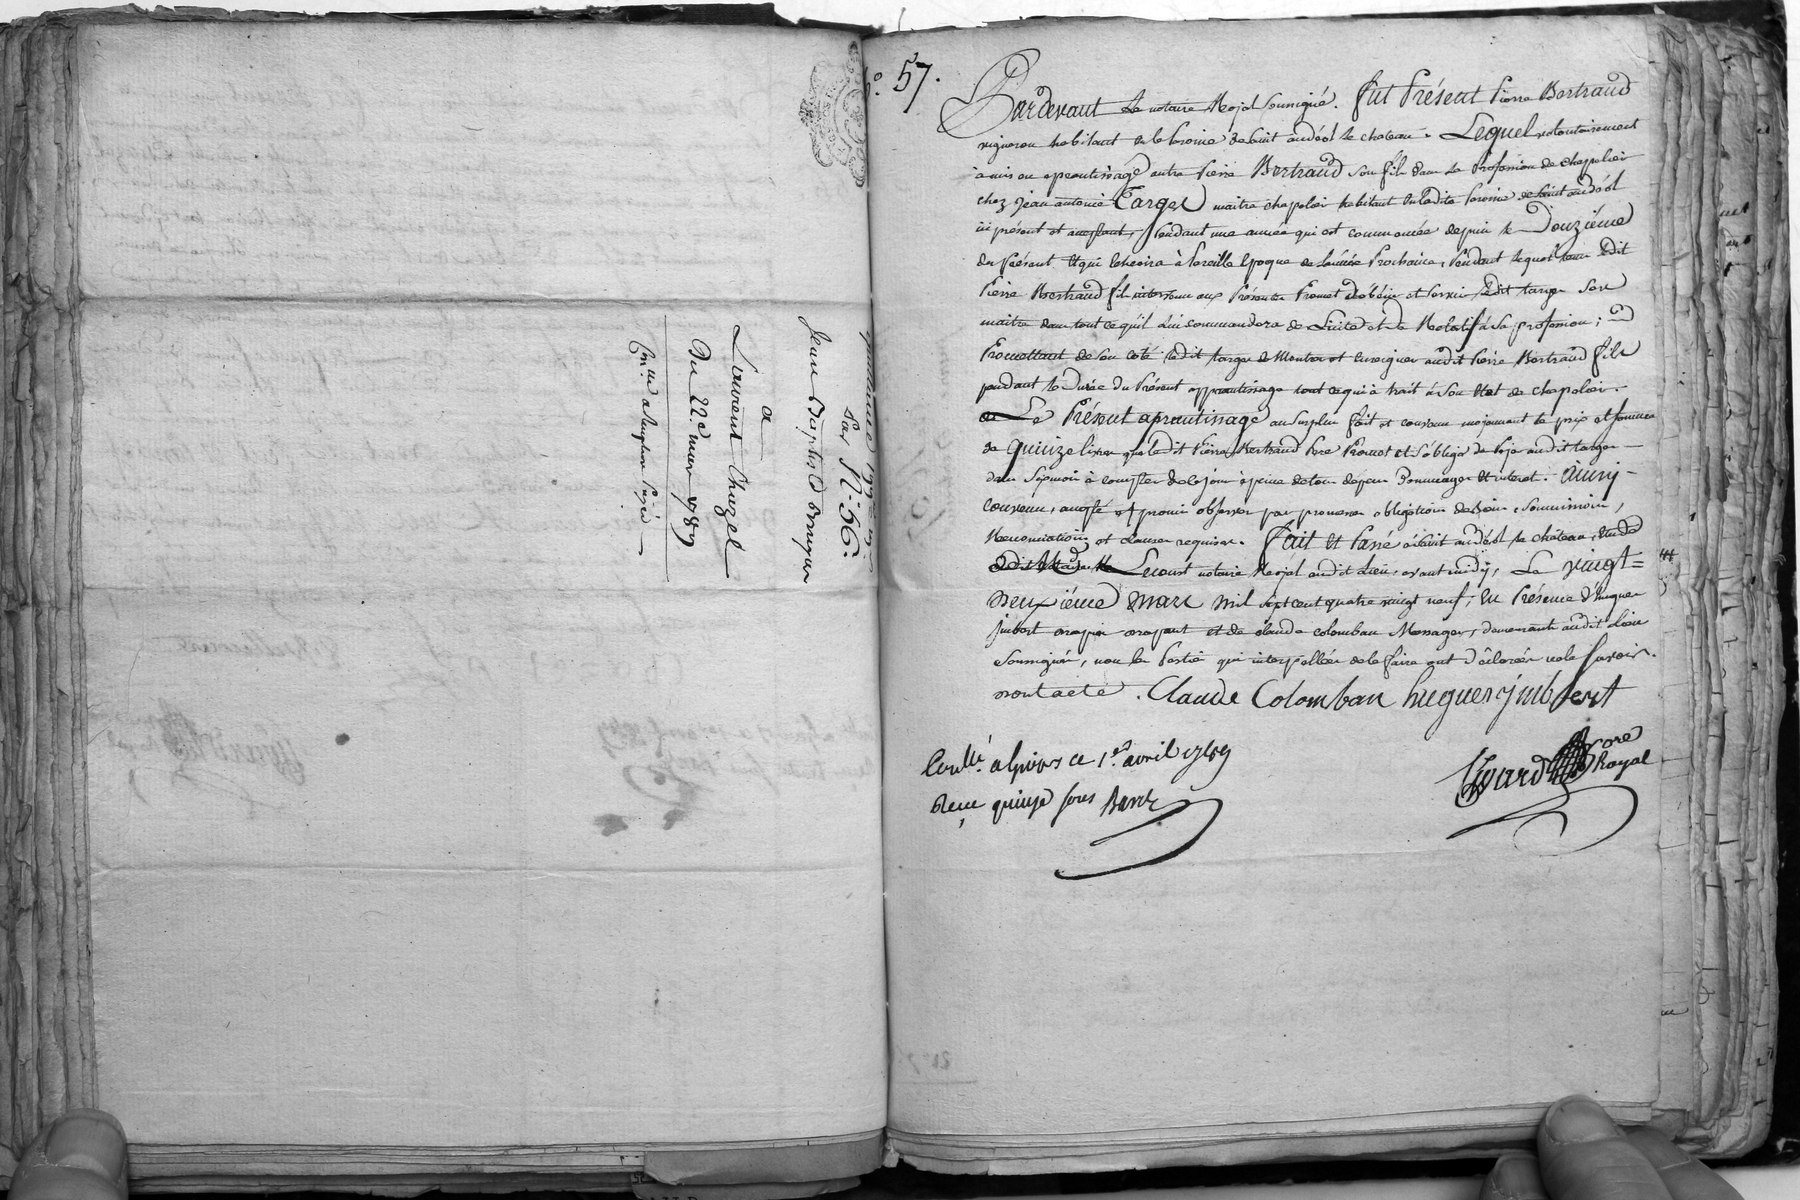 quittance 177#
par N.° 56.
Jean Baptiste
a
Laurent Chuzel
Du 22.e mars 1789
n.° 57.
Pardevant Le notaire Royal soussigné. fut Présent Pierre Bertrand
vigneron habitant en la Paroisse de saint andéol le chateau. Lequel volontairement
a mis en apprentissage autre Pierre Bertrand son fils dans La Profession de chapelier
chez jean antoine Targe maitre chapelier habitant en ladite Paroisse de saint andéol
ici présent et acceptant, Pendant une année qui est commencée depuis le Douzième
du Présent Et qui Echeoira à Pareille Epoque de L'année Prochaine, Pendant lequel tems Ledit
Pierre Bertrand fils intervenu aux Présentes Promet d'obéir et servir Ledit targe son
maitre dans tout ce qu'il Lui commandera de Licite et de Relatif à sa profession;
Promettant de son coté Ledit targe de Montrer et Enseigner audit Pierre Bertrand fils
pendant la Durée du Présent apprentissage tout ce qui à trait à son Etat de chapelier.
Le Présent aprentissage au surplus fait et convenu moyennant le prix et somme
de quinze livres que ledit Pierre Bertrand Pere Promet et s'oblige de Payer audit targe
dans six mois à compter de ce jour à peine de tous depens Dommages Et interets. ainsi
convenu, accepté et promis observer par promesses obligation de Biens, Soumissions,
Renonciations et clauses requises. fait et Passé à saint andéol le château, Etude
notaire Royal audit Lieu, avant midy, Le vingt=
Deuxième mars mil sept cent quatre vingt neuf; En Présence d'hugues
jmbert et de claude colomban Messager, demeurants audit Lieu
Soussignés, non les Parties qui interpellées de le faire ont Déclarées ne le savoir.
dont acte. Claude Colomban hugues jmbert
Conllé. a Givors ce 1.er avril 1789
Reçu quinze sous
no.re
Royal